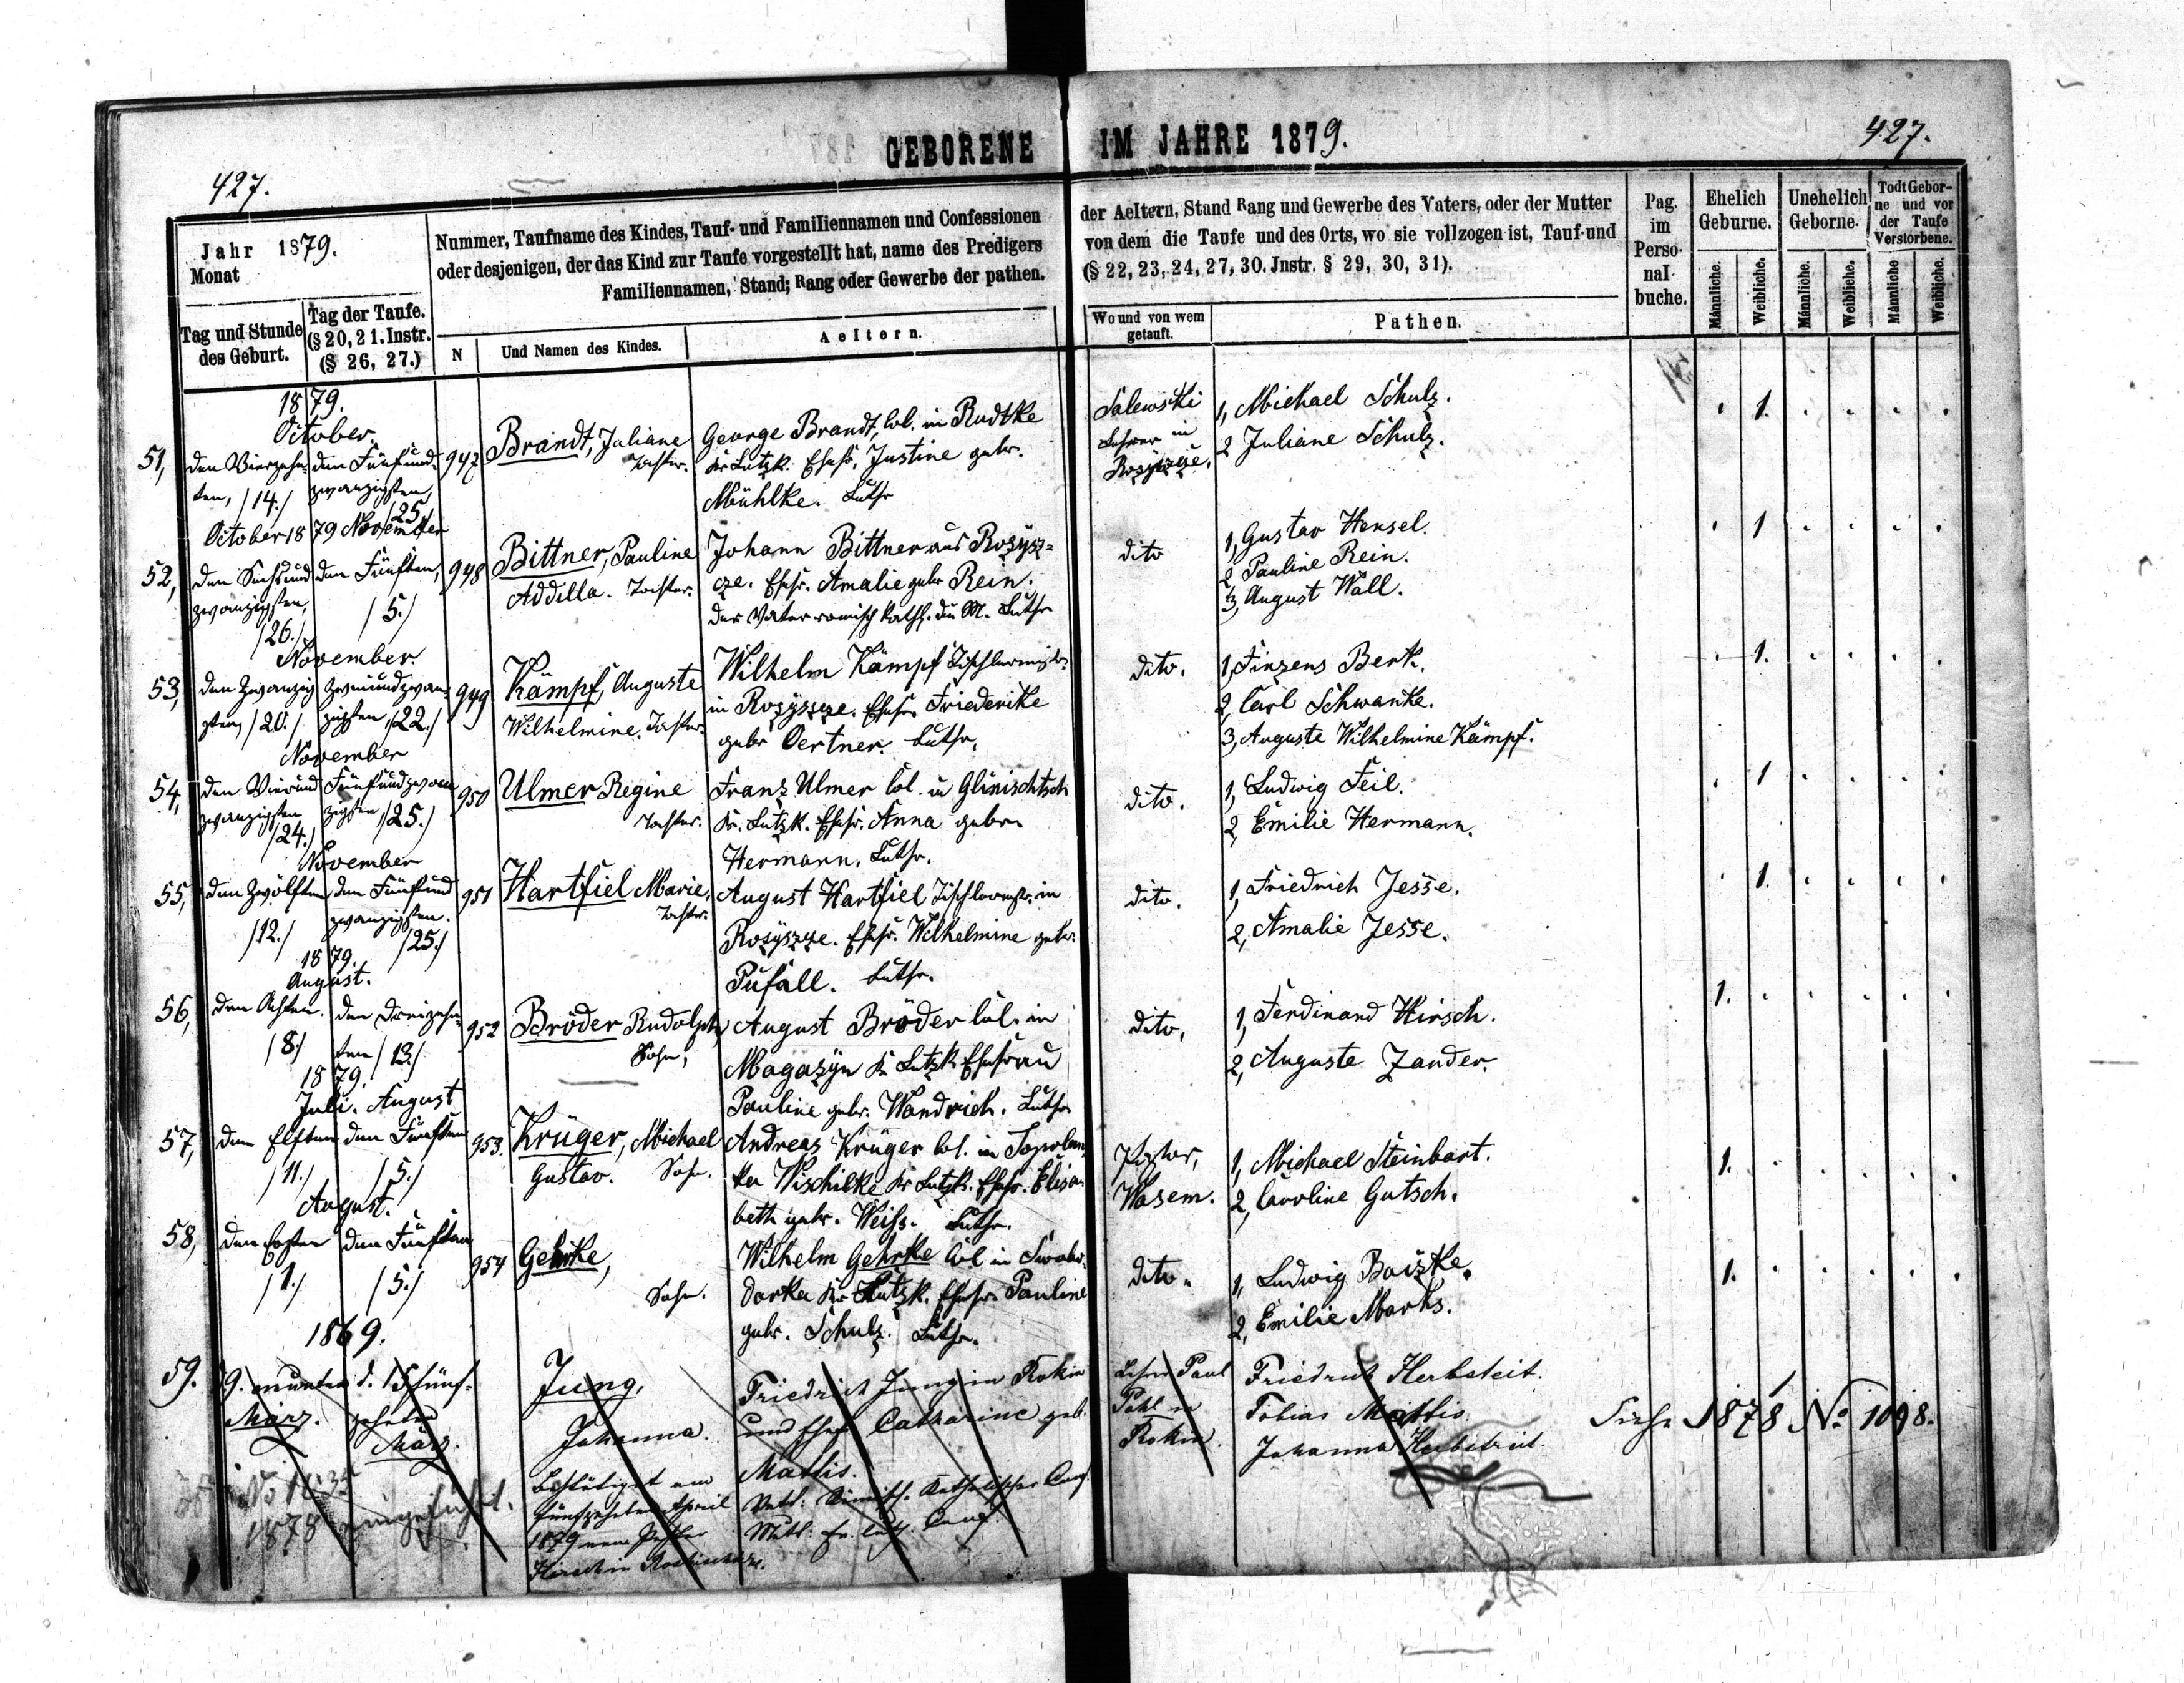 GEBORENE IM JAHRE 1879.
427.
427.
Jahr 1879.
Monat
Tag und Stunde
des Geburt.
Tag der Taufe.
(§ 20, 21. Instr.
(§ 26, 27.)
Nummer, Taufname des Kindes, Tauf- und Familiennamen und Confessionen
oder desjenigen, der das Kind zur Taufe vorgestellt hat, name des Predigers
Familiennamen, Stand; Rang oder Gewerbe der pathen.
N
Und Namen des Kindes.
Aeltern.
der Aeltern, Stand Rang und Gewerbe des Vaters, oder der Mutter
von dem die Taufe und des Orts, wo sie vollzogen ist, Tauf-und
(§ 22, 23, 24, 27, 30. Jnstr. § 29, 30, 31).
Wo und von wem
getauft.
Pathen.
Pag.
im
Perso-
nal-
buche.
Ehelich
Geburne.
Unehelich
Geborne.
Todt Gebor-
ne und vor
der Taufe
Verstorbene.
Männliche.
Weibliche.
Männliche.
Weibliche.
Männliche
Weibliche.
1879.
October.
51, den Vierzehn-
ten, /14./
den Fünfund-
zwanzigsten,
/25./
947
Brandt, Juliane
Tochter.
George Brandt, Col. in Rudtke
Kr Lutzk. Ehefr. Justine gebr.
Mühlke. Luthr
Salewski
Lehrer in
Rosyszcze.
1, Michael Schulz.
2 Juliane Schulz.
1.
October 1879 November
52, den Sechsund
zwanzigsten,
/26./
den Fünften,
/5./
948
Bittner, Pauline
Addilla. Tochter.
Johann Bittner aus Rosysz-
cze. Ehefr. Amalie gebr Rein.
der Vater romisch kath. die M. Luthr
dito
1, Gustav Hensel.
2, Pauline Rein.
3, August Wall.
1
November.
53, den Zwanzig
sten, /20./
Zweiundzwan-
zigsten, /22./
949
Kämpf, Auguste
Wilhelmine. Tochter.
Wilhelm Kämpf Tischlermstr.
in Rosyszcze. Ehefr. Friederike
gebr Oertner. Luthr.
dito.
1, Finzens Berk.
2, Carl Schwanke.
3, Auguste Wilhelmine Kämpf.
1.
November
54, den Vierund
zwanzigsten
/24./
Fünfundzwan
zigsten /25./
950
Ulmer Regine
Tochter.
Franz Ulmer Col. in Glinischtsch
Kr. Lutzk. Ehefr. Anna gebr.
Hermann. Luthr.
dito.
1, Ludwig Feil.
2, Emilie Hermann.
1
November
55, den Zwölften
/12./
den Fünfund
zwanzigsten.
/25./
951
Hartfiel Marie,
Tochter.
August Hartfiel Tischlermstr. in
Rosyszcze. Ehefr. Wilhelmine gebr.
Pufall. Luthr.
dito.
1, Friedrich Jesse.
2, Amalie Jesse.
1.
1879.
August.
56, den Achten.
/8./
den Dreizehn-
ten /13./
952
Bröder Rudolph,
Sohn,
August Bröder Col. in
Magazyn Kr Lutzk Ehefrau
Pauline gebr. Wandrich. Luthr
dito,
1, Ferdinand Hirsch.
2, Auguste Zander.
1.
1879.
Juli. August
57, den Elften
/11./
den Fünften
/5./
953.
Krüger, Michael
Gustav. Sohn.
Andreas Krüger Col. in
ka Wischilke Kr Lutzk. Ehefr. Elisa-
beth gebr. Weiss. Luthr.
Pastor,
Wasem.
1, Michael Steinbart.
2, Caroline Gutsch.
1.
August.
58, den Ersten
/1./
den Fünften
/5./
954
Gehrke,
Sohn.
Wilhelm Gehrke Col in Swobo-
darka Kr Lutzk. Ehefr. Pauline
gebr. Schulz. Luthr.
dito.
1, Ludwig Baizke.
2, Emilie Marks.
1.
1869.
59. 9. neunten
März.
d. 15 fünf-
zehnten
März.
Jung,
Johanna.
Bestätigt am
fünfzehnten April
1879 vom Pastor
Friedrich Jung in Rokin
und Ehefr Catharine geb.
Mattis.
Vatr: Römisch-Katholischer Conf.
Mutt. Ev. luth. Conf.
Lehrer Paul
Pohl in
Rokin.
Friedrich Herbsteit.
Tobias Mattis.
Johanna Herbstreit.
Siehe 1878 No 1098.
1878 eingeführt.